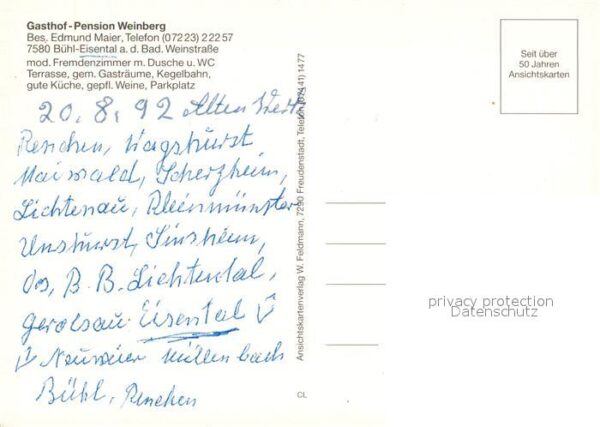 Gasthof-Pension Weinberg
Bes. Edmund Maier, Telefon (07223) 22257
7580 Bühl-Eisental a. d. Bad. Weinstraße
mod. Fremdenzimmer m. Dusche u. WC
Terrasse, gem. Gasträume, Kegelbahn,
gute Küche, gepfl. Weine, Parkplatz
20.8.92 Alten
Renchen, Wagshurst
Maiwald, Scherzheim,
Lichtenau, Rheinmünster
Unshurst, Sinsheim,
Oos, B. B. Lichtental,
Gerolsau Eisental
Neuweier Müllenbach
Bühl, Renchen
Ansichtskartenverlag W. Feldmann, 7290 Freudenstadt, Telefon (07441) 1477
CL
Seit über
50 Jahren
Ansichtskarten
privacy protection
Datenschutz